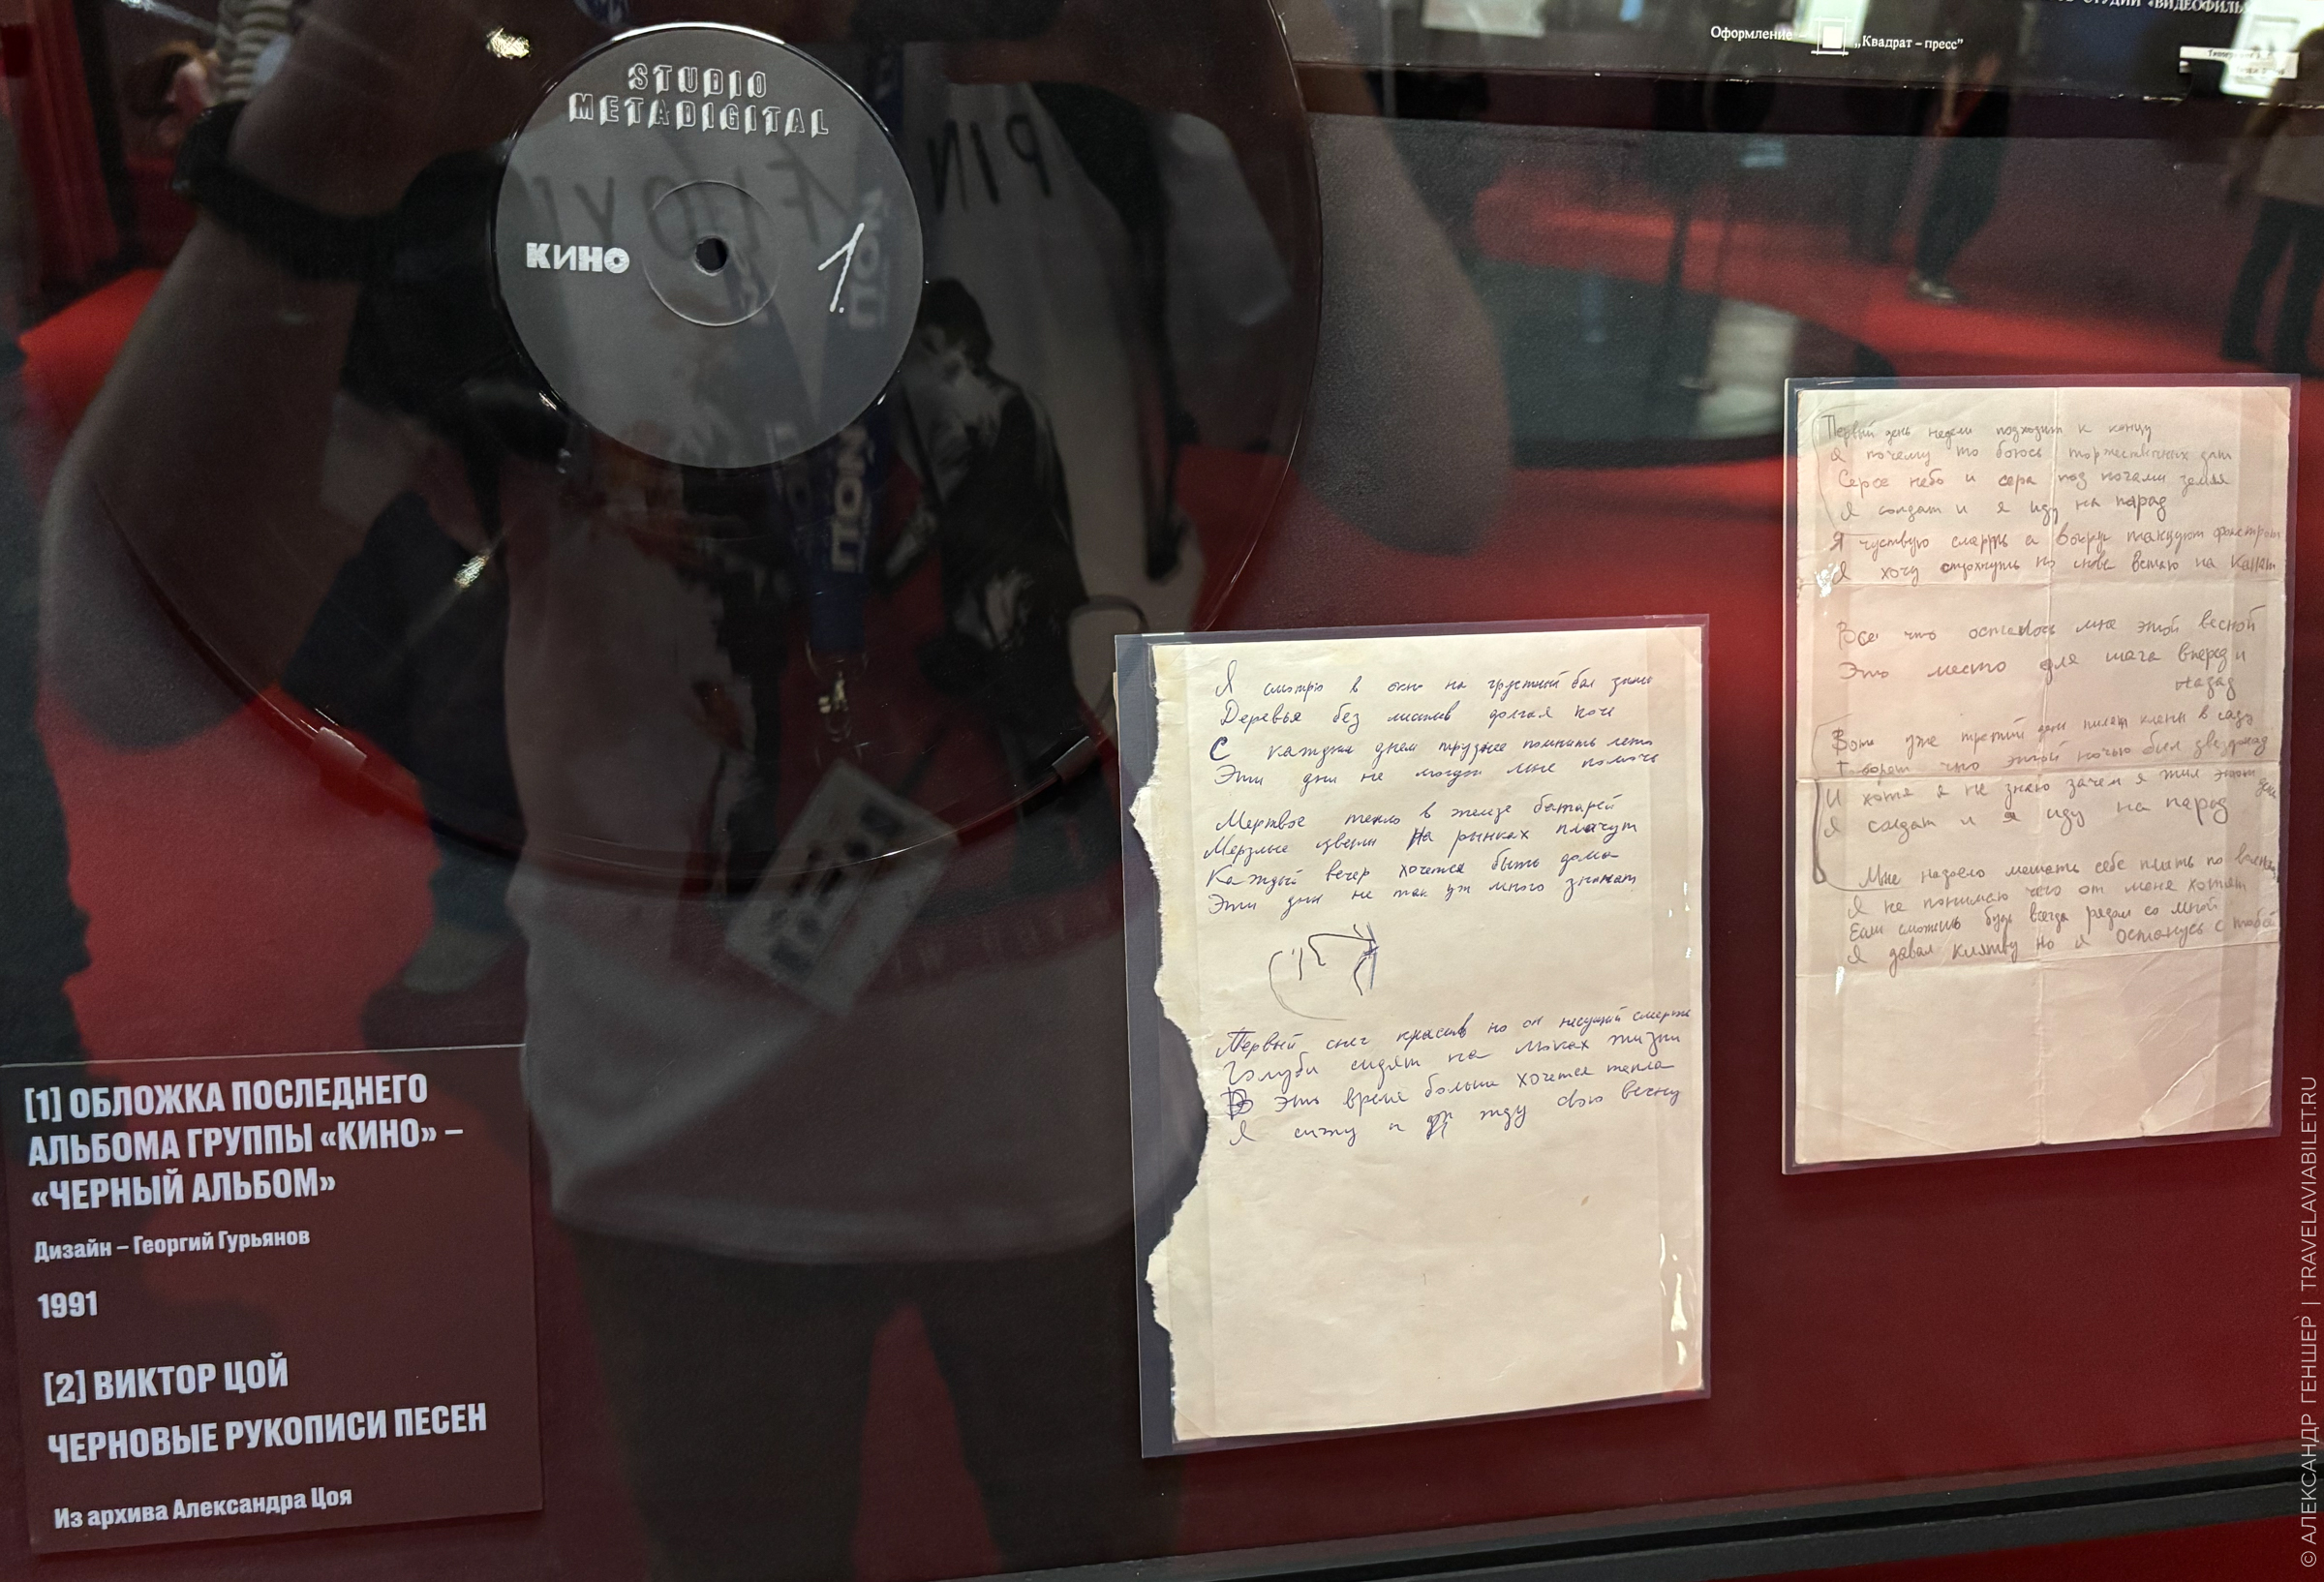 STUDIO
METADIGITAL
КИНО
1.
СТУДИИ «ВИДЕОФИЛЬМ
Оформление – „Квадрат – пресс”
Первый день недели подходит к концу
Я почему то боюсь торжественных дат
Серое небо и сера под ногами земля
Я солдат и я иду на парад
Я чуствую смерть а вокруг танцуют фокстрот
Я хочу сдохнуть но снова встаю на канат
Все что осталось мне этой весной
Это место для шага вперед и
назад
Вот уже третий день пилят клены в саду
Говорят что этой ночью был звездопад
И хотя я не знаю зачем я жил этот день
Я солдат и я иду на парад
Мне надоело мешать себе плыть по
Я не понимаю чего от меня хотят
Если сможешь будь всегда рядом со мной
Я давал клятву но я останусь с тобой
Я смотрю в окно на грустный бал зимы
Деревья без листьев долгая ночь
С каждым днем труднее помнить лето
Эти дни не могут мне помочь
Мертвое тепло в железе батарей
Мерзлые цветы На рынках плачут
Каждый вечер хочется быть дома
Эти дни не так уж много значат
Первый снег красив но он несущий смерть
Голуби сидят на люках жизни
В это время больше хочется тепла
Я сижу и жду свою весну
[1] ОБЛОЖКА ПОСЛЕДНЕГО
АЛЬБОМА ГРУППЫ «КИНО» –
«ЧЕРНЫЙ АЛЬБОМ»
Дизайн – Георгий Гурьянов
1991
[2] ВИКТОР ЦОЙ
ЧЕРНОВЫЕ РУКОПИСИ ПЕСЕН
Из архива Александра Цоя
© АЛЕКСАНДР ГЕНШЕР | TRAVELAVIABILET.RU